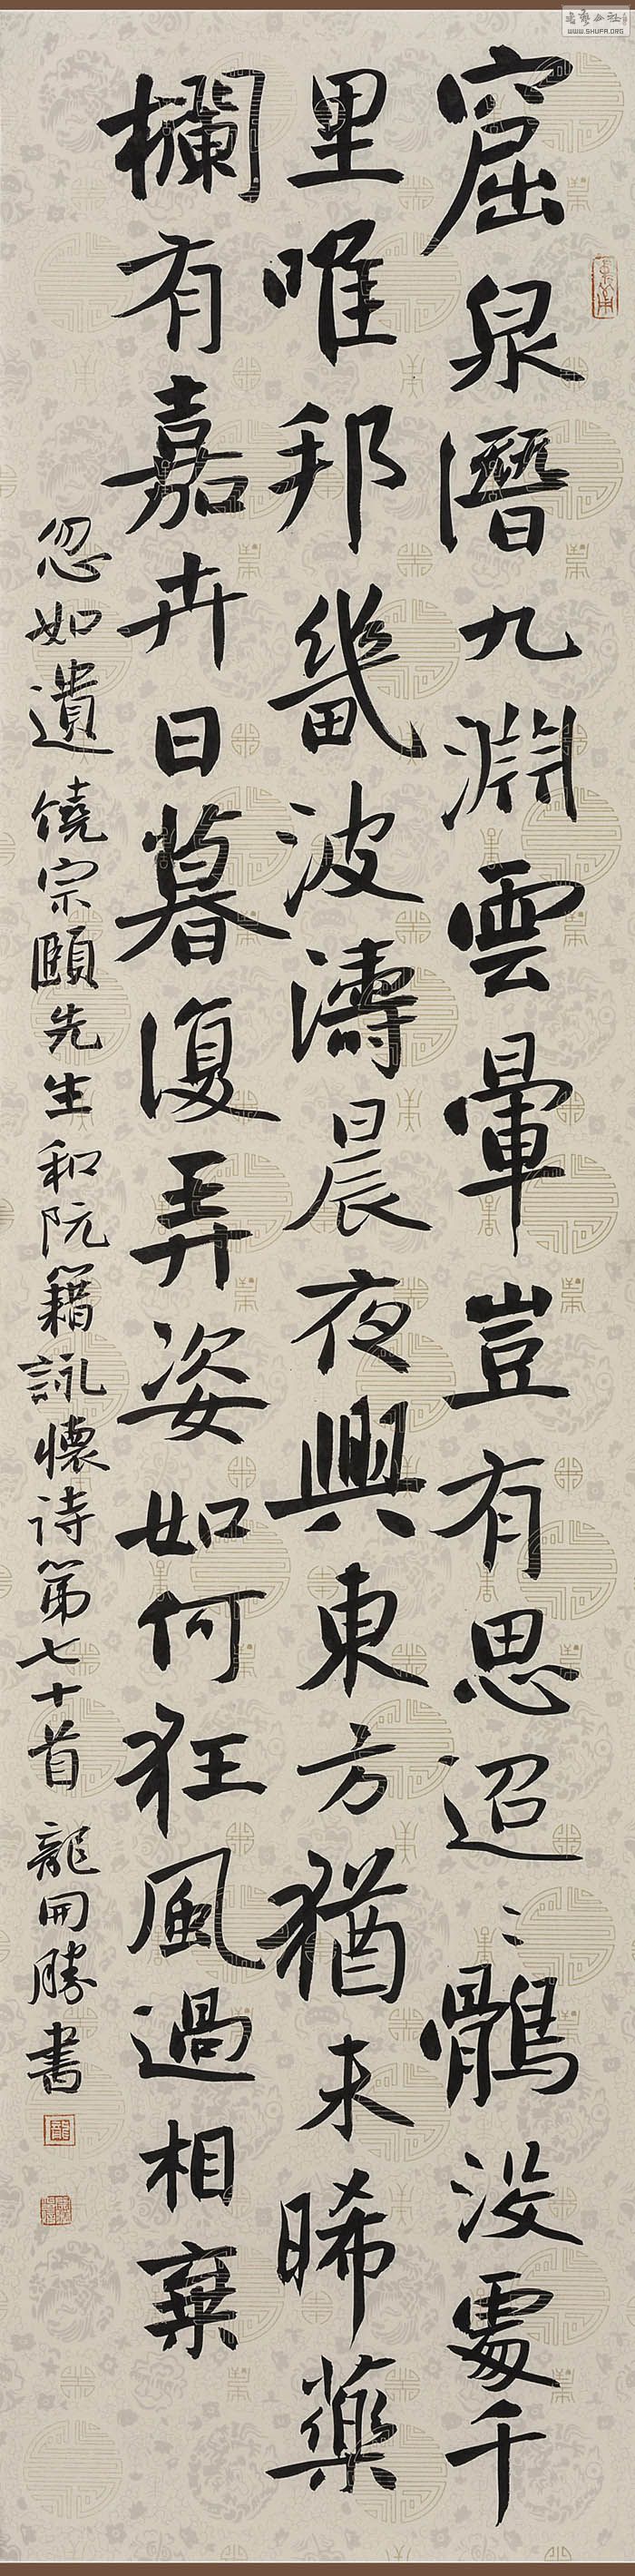 窟泉潛九淵雲暈豈有思迢〻鶻没處千
里唯邦畿波濤日晨夜興東方猶未晞藥
欄有嘉卉日暮復弄姿如何狂風過相棄
忽如遺 饒宗頤先生和阮籍詠懷诗第七十首 龍開勝書
龍
WWW.SHUFA.ORG